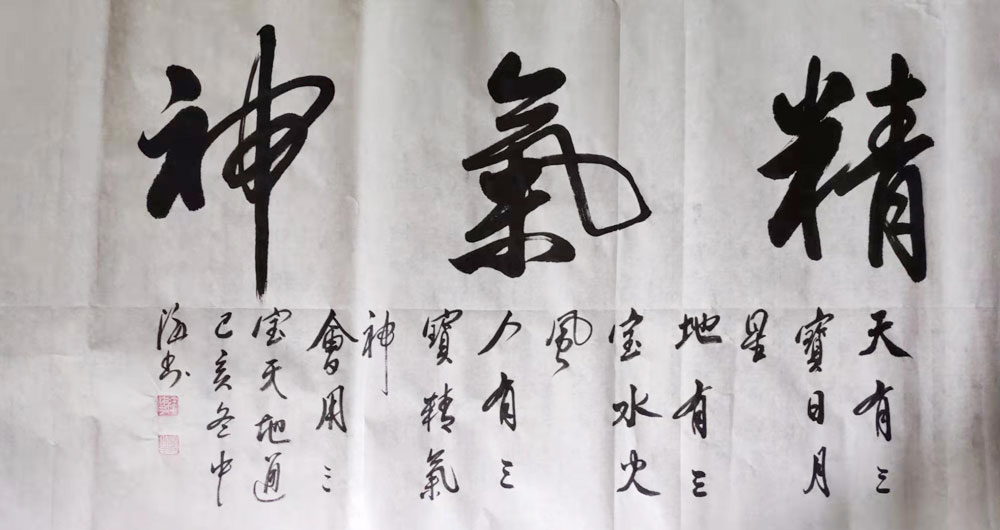 精氣神
天有三
寶日月
星
地有三
宝水火
風
人有三
寶精氣
神
會用三
宝天地通
己亥冬中
海书